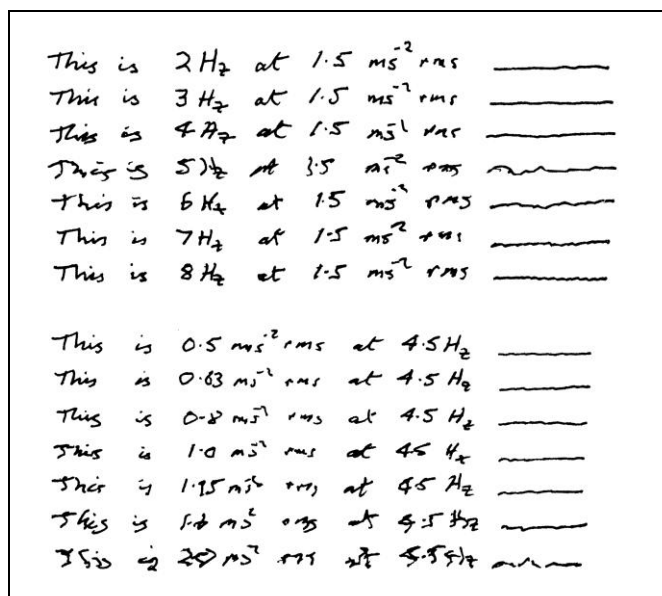 This is 2 Hz at 1.5 ms⁻² rms
This is 3 Hz at 1.5 ms⁻² rms
This is 4 Hz at 1.5 ms⁻² rms
This is 5 Hz at 1.5 ms⁻² rms
This is 6 Hz at 1.5 ms⁻² rms
This is 7 Hz at 1.5 ms⁻² rms
This is 8 Hz at 1.5 ms⁻² rms
This is 0.5 ms⁻² rms at 4.5 Hz
This is 0.63 ms⁻² rms at 4.5 Hz
This is 0.8 ms⁻² rms at 4.5 Hz
This is 1.0 ms⁻² rms at 4.5 Hz
This is ms⁻² rms at 4.5 Hz
This is ms⁻² rms at 4.5 Hz
This is ms⁻² rms at 4.5 Hz